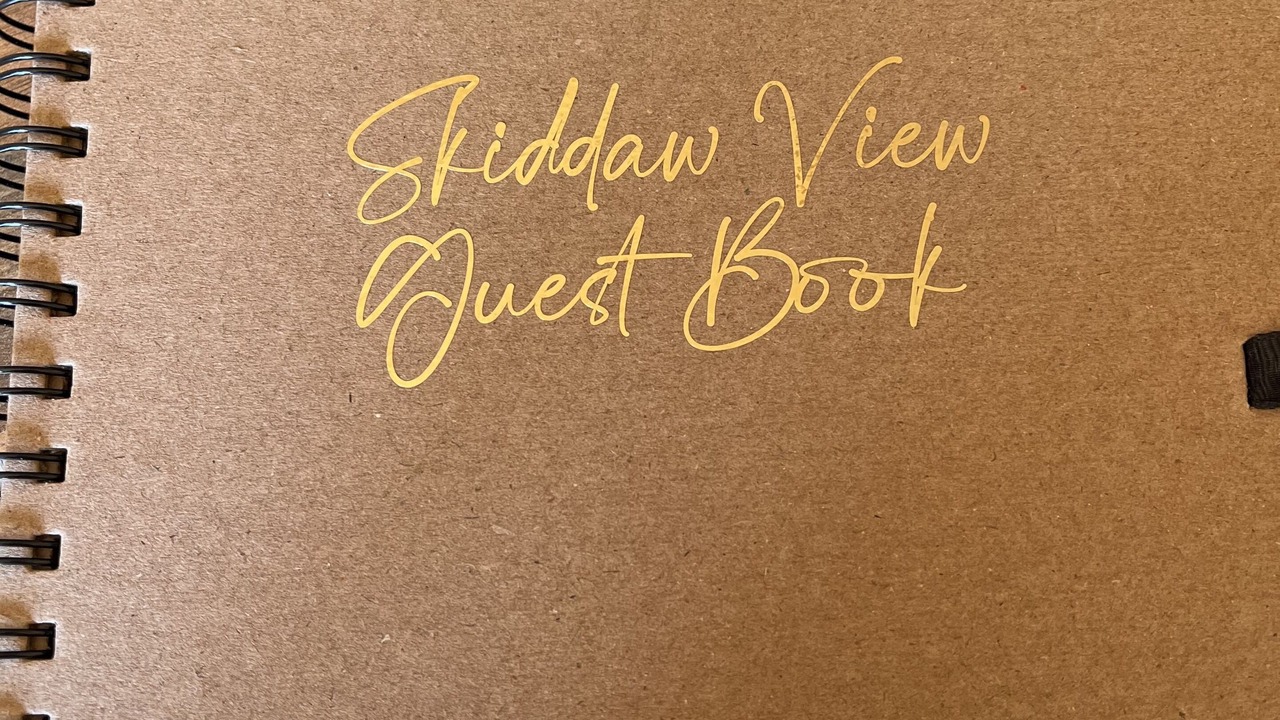 Skiddaw View
Guest Book